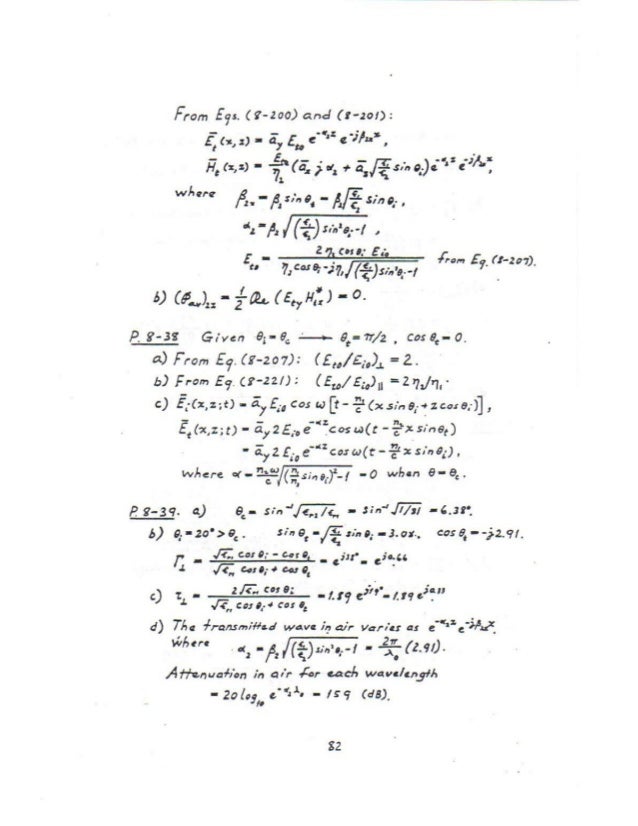 From Eqs. (8-200) and (8-201):
Ē_t (x,z) = ā_y E_t0 e^{-α₂z} e^{-jβ₂ₓx},
H̄_t (x,z) = E_t0/η₂ (ā_x j α₂ + ā_z √(ε₁/ε₂) sin θ_i) e^{-α₂z} e^{-jβ₂ₓx},
where β₂ₓ = β₂ sin θ_t = β₂ √(ε₁/ε₂) sin θ_i,
α₂ = β₂ √((ε₁/ε₂) sin²θ_i - 1),
E_t0 = 2 η₂ cos θ_i E_i0 / (η₂ cos θ_i - j η₁ √((ε₁/ε₂) sin²θ_i - 1)) from Eq. (8-207).
b) (𝒫_av)₂z = 1/2 ℛe (E_ty H*_tx) = 0.
P. 8-38 Given θ_i = θ_c ⟶ θ_t = π/2, cos θ_t = 0.
a) From Eq. (8-207): (E_t0/E_i0)_⊥ = 2.
b) From Eq. (8-221): (E_t0/E_i0)_∥ = 2 η₂/η₁.
c) Ē_i (x,z;t) = ā_y E_i0 cos ω [t - n₁/c (x sin θ_i + z cos θ_i)],
Ē_t (x,z;t) = ā_y 2 E_i0 e^{-αz} cos ω (t - n₂/c x sin θ_t)
= ā_y 2 E_i0 e^{-αz} cos ω (t - n₁/c x sin θ_i),
where α = n₂ω/c √((n₁/n₂ sin θ_i)² - 1) = 0 when θ = θ_c.
P. 8-39. a) θ_c = sin⁻¹ √(ε_r2/ε_r1) = sin⁻¹ √(1/81) = 6.38°.
b) θ_i = 20° > θ_c. sin θ_t = √(ε₁/ε₂) sin θ_i = 3.08, cos θ_t = -j2.91.
Γ_⊥ = (√ε_r1 cos θ_i - cos θ_t) / (√ε_r1 cos θ_i + cos θ_t) = e^{j38°} = e^{j0.66}
c) τ_⊥ = 2√ε_r1 cos θ_i / (√ε_r1 cos θ_i + cos θ_t) = 1.89 e^{j19°} = 1.89 e^{j0.33}
d) The transmitted wave in air varies as e^{-α₂z} e^{-jβ₂ₓx}.
Where α₂ = β₂ √((ε₁/ε₂) sin²θ_i - 1) = 2π/λ₀ (2.91).
Attenuation in air for each wavelength
= 20 log₁₀ e^{-α₂λ₀} = 159 (dB).
82